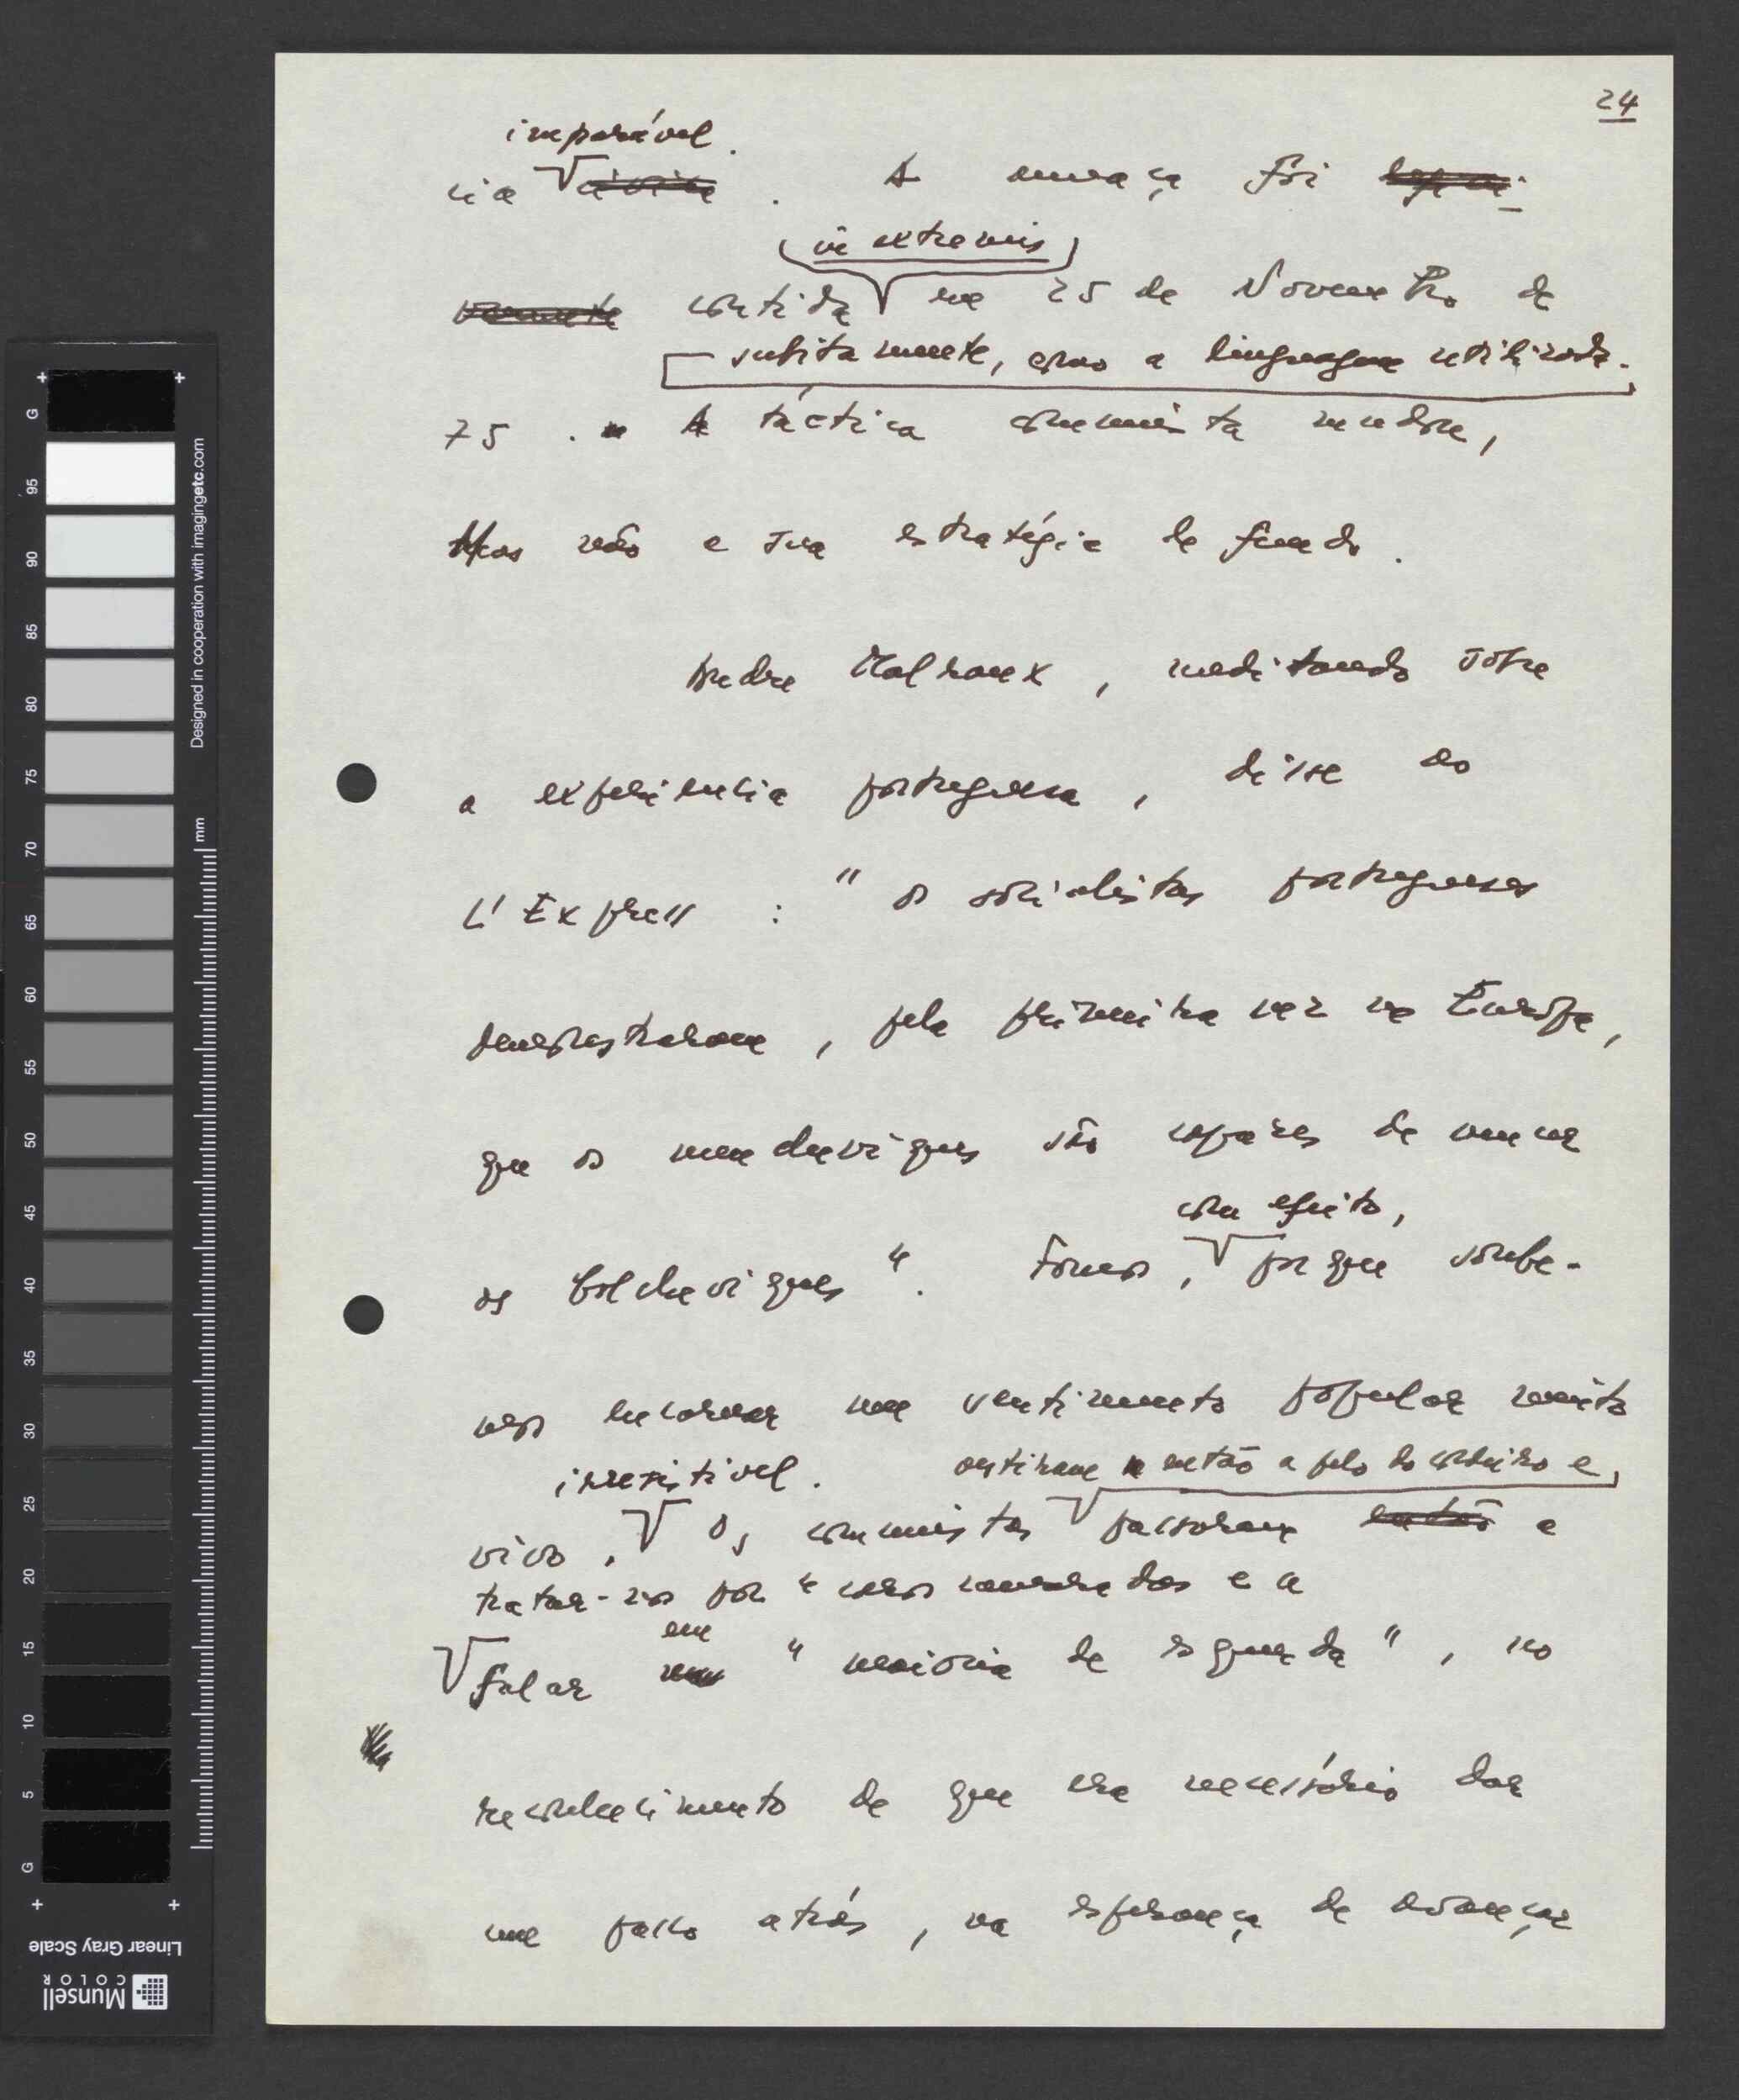 24
imparável.
cia cívica. A ameaça foi
in extremis
contida em 25 de Novembro de
subitamente, como a linguagem utilizada.
75. A táctica comunista mudou,
Mas não a sua estratégia de fundo.
Andre Malraux, meditando sobre
a experiência portuguesa, disse ao
L'Express : "os socialistas portugueses
demonstraram, pela primeira vez na Europa,
que os mencheviques são capazes de vencer
com efeito,
os bolcheviques". Fomos, porque soube-
mos encarnar um sentimento popular muito
irresistível. vestiram então a pele do cordeiro e,
vivo. Os comunistas passaram então a
tratar-nos por "caros camaradas e a
em
falar "maioria de esquerda", no
reconhecimento de que era necessário dar
um passo atrás, na esperança de avançar
G
95
90
85
80
75
70
65
60
55
50
45
40
35
30
25
20
15
10
5
G
mm
Designed in cooperation with imagingetc.com
Linear Gray Scale
Munsell
COLOR